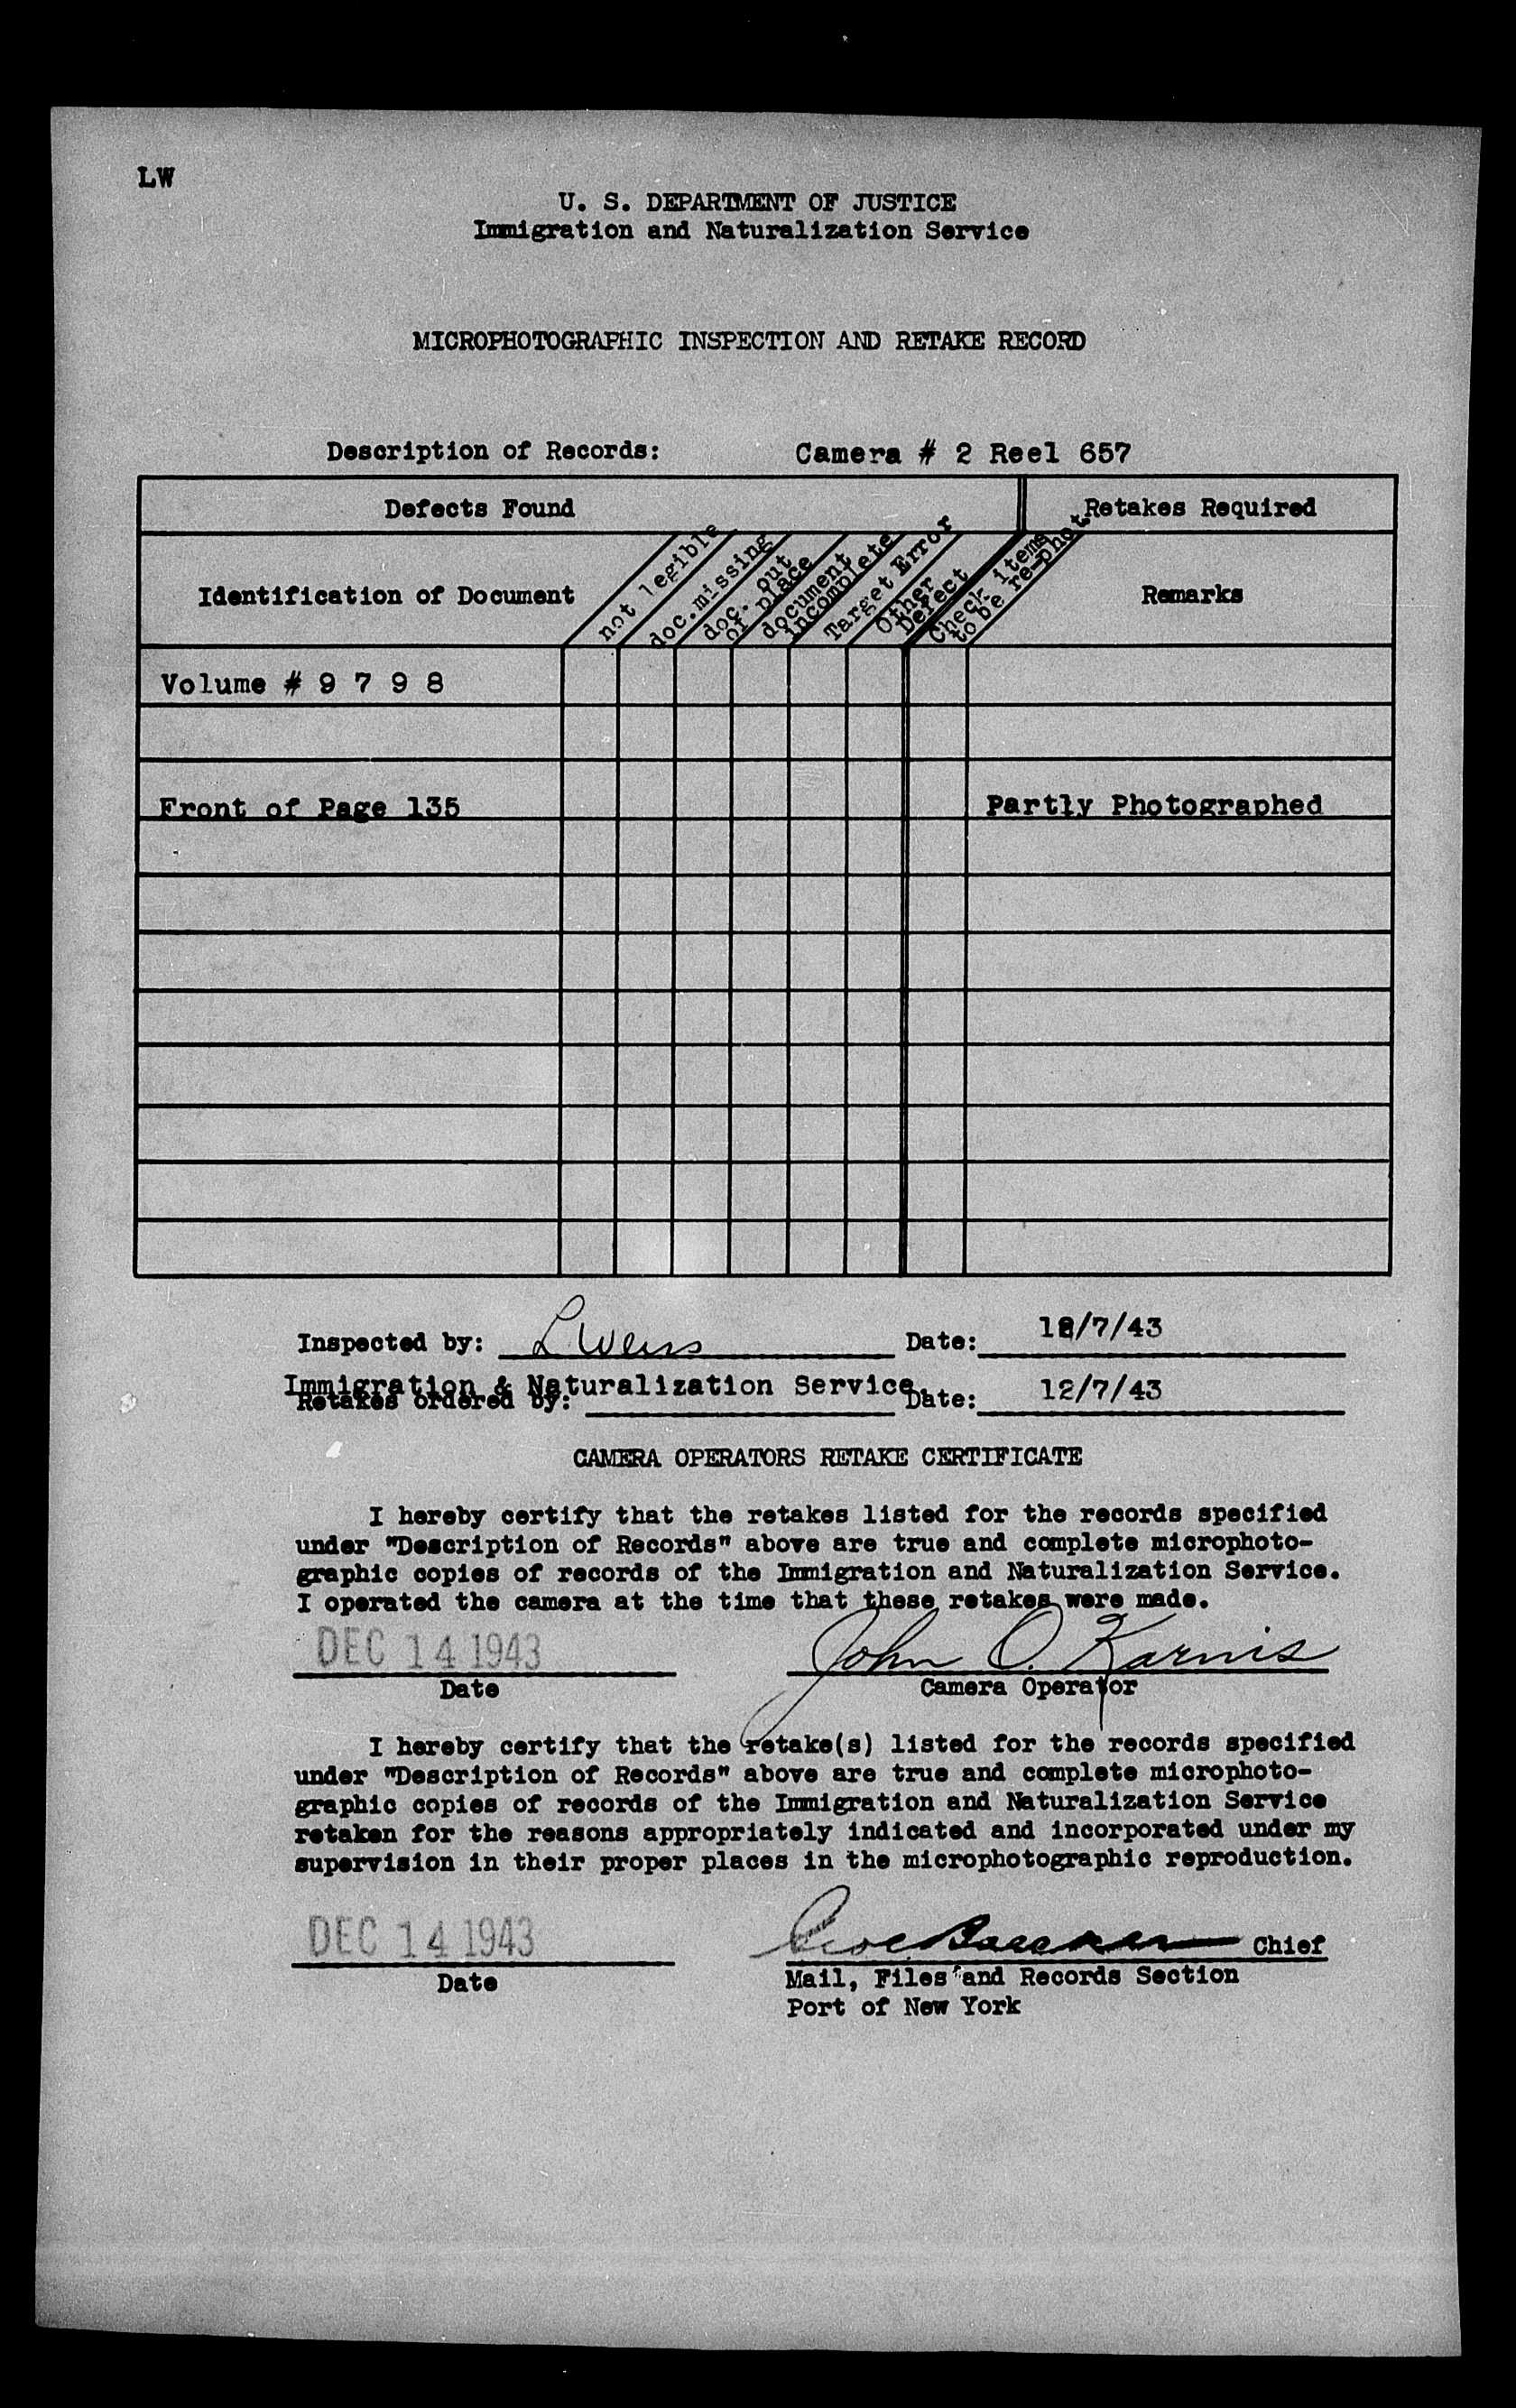 LW
U. S. DEPARTMENT OF JUSTICE
Immigration and Naturalization Service
MICROPHOTOGRAPHIC INSPECTION AND RETAKE RECORD
Description of Records: Camera # 2 Reel 657
Defects Found Retakes Required
Identification of Document
not legible
doc.missing
doc. out
of place
document
incomplete
Target Error
Other
Defect
Check items
to be re-phot
Remarks
Volume # 9 7 9 8
Front of Page 135 Partly Photographed
Inspected by: L Weiss Date: 12/7/43
Immigration & Naturalization Service
Retakes ordered by: Date: 12/7/43
CAMERA OPERATORS RETAKE CERTIFICATE
I hereby certify that the retakes listed for the records specified
under "Description of Records" above are true and complete microphoto-
graphic copies of records of the Immigration and Naturalization Service.
I operated the camera at the time that these retakes were made.
DEC 14 1943 John O. Karnis
Date Camera Operator
I hereby certify that the retake(s) listed for the records specified
under "Description of Records" above are true and complete microphoto-
graphic copies of records of the Immigration and Naturalization Service
retaken for the reasons appropriately indicated and incorporated under my
supervision in their proper places in the microphotographic reproduction.
DEC 14 1943 Chief
Date Mail, Files and Records Section
Port of New York